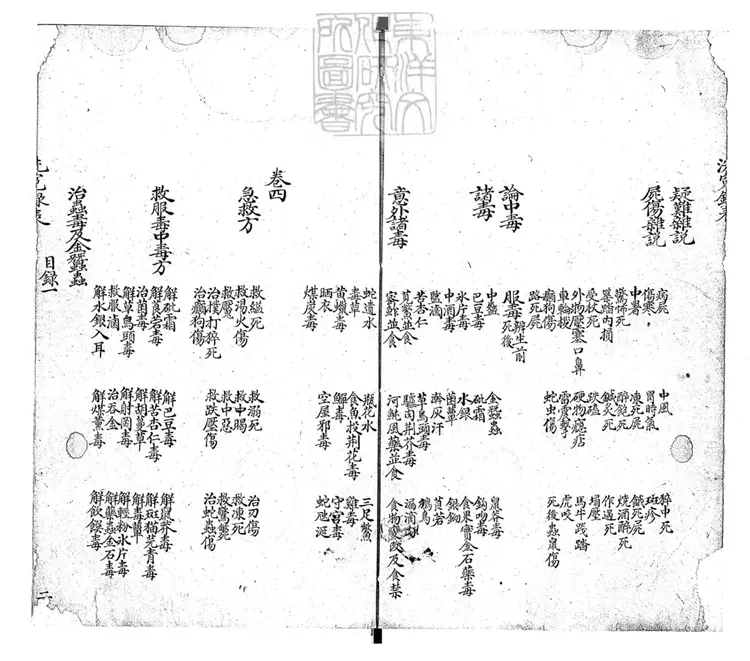 東洋文化研究所圖書
疑難雜說
屍傷雜說
病屍 中風 猝中死
傷寒 冒時氣 斑疹
中暑 凍死屍 餓死屍
驚怖死 醉飽死 燒酒醉死
築踏內損 鍼灸死 作過死
受杖死 跌磕 塌壓
外物壓塞口鼻 硬物癮痁 馬牛踐踏
車輪拶 雷震擊 虎咬
癲狗傷 蛇虫傷 死後蟲鼠傷
路死屍
論中毒 服毒辨生前死後
諸毒
中蠱 金蠶蟲 鼠莽毒
巴豆毒 砒霜 鉤吻毒
氷片毒 水銀 食果實金石藥毒
中酒毒 菌蕈
鹽滷 莨菪
苦杏仁 草烏頭毒 鴆鳥
莧鱉並食 驢肉荊芥毒
蜜鮓並食 河魨風藥並食 食物變及食禁
意外諸毒
蛇遺水 瓶花水 三足鱉
毒草 食魚投荊花毒 雞毒
黃蠟毒 鱓毒 守宮毒
晒衣 空屋邪毒 蛇虺涎
煤炭毒
卷四
急救方
救縊死 救溺死 治刃傷
救湯火傷 救中暍 救凍死
救魘 救中惡 救驚斃
治撲打猝死 救跌壓傷 治蛇蟲傷
治癲狗傷
救服毒中毒方
解砒霜 解巴豆毒 解鼠莽毒
解莨菪毒 解苦杏仁毒 解斑貓芫青毒
治菌毒 解胡蔓草 解毒蕈
解草烏頭毒 解射罔毒 解輕粉氷片毒
救服滷 治吞金 解藥蟲金石毒
解水銀入耳 解煤薰毒 解飲饌毒
治蠱毒及金蠶蠱
目錄一 二